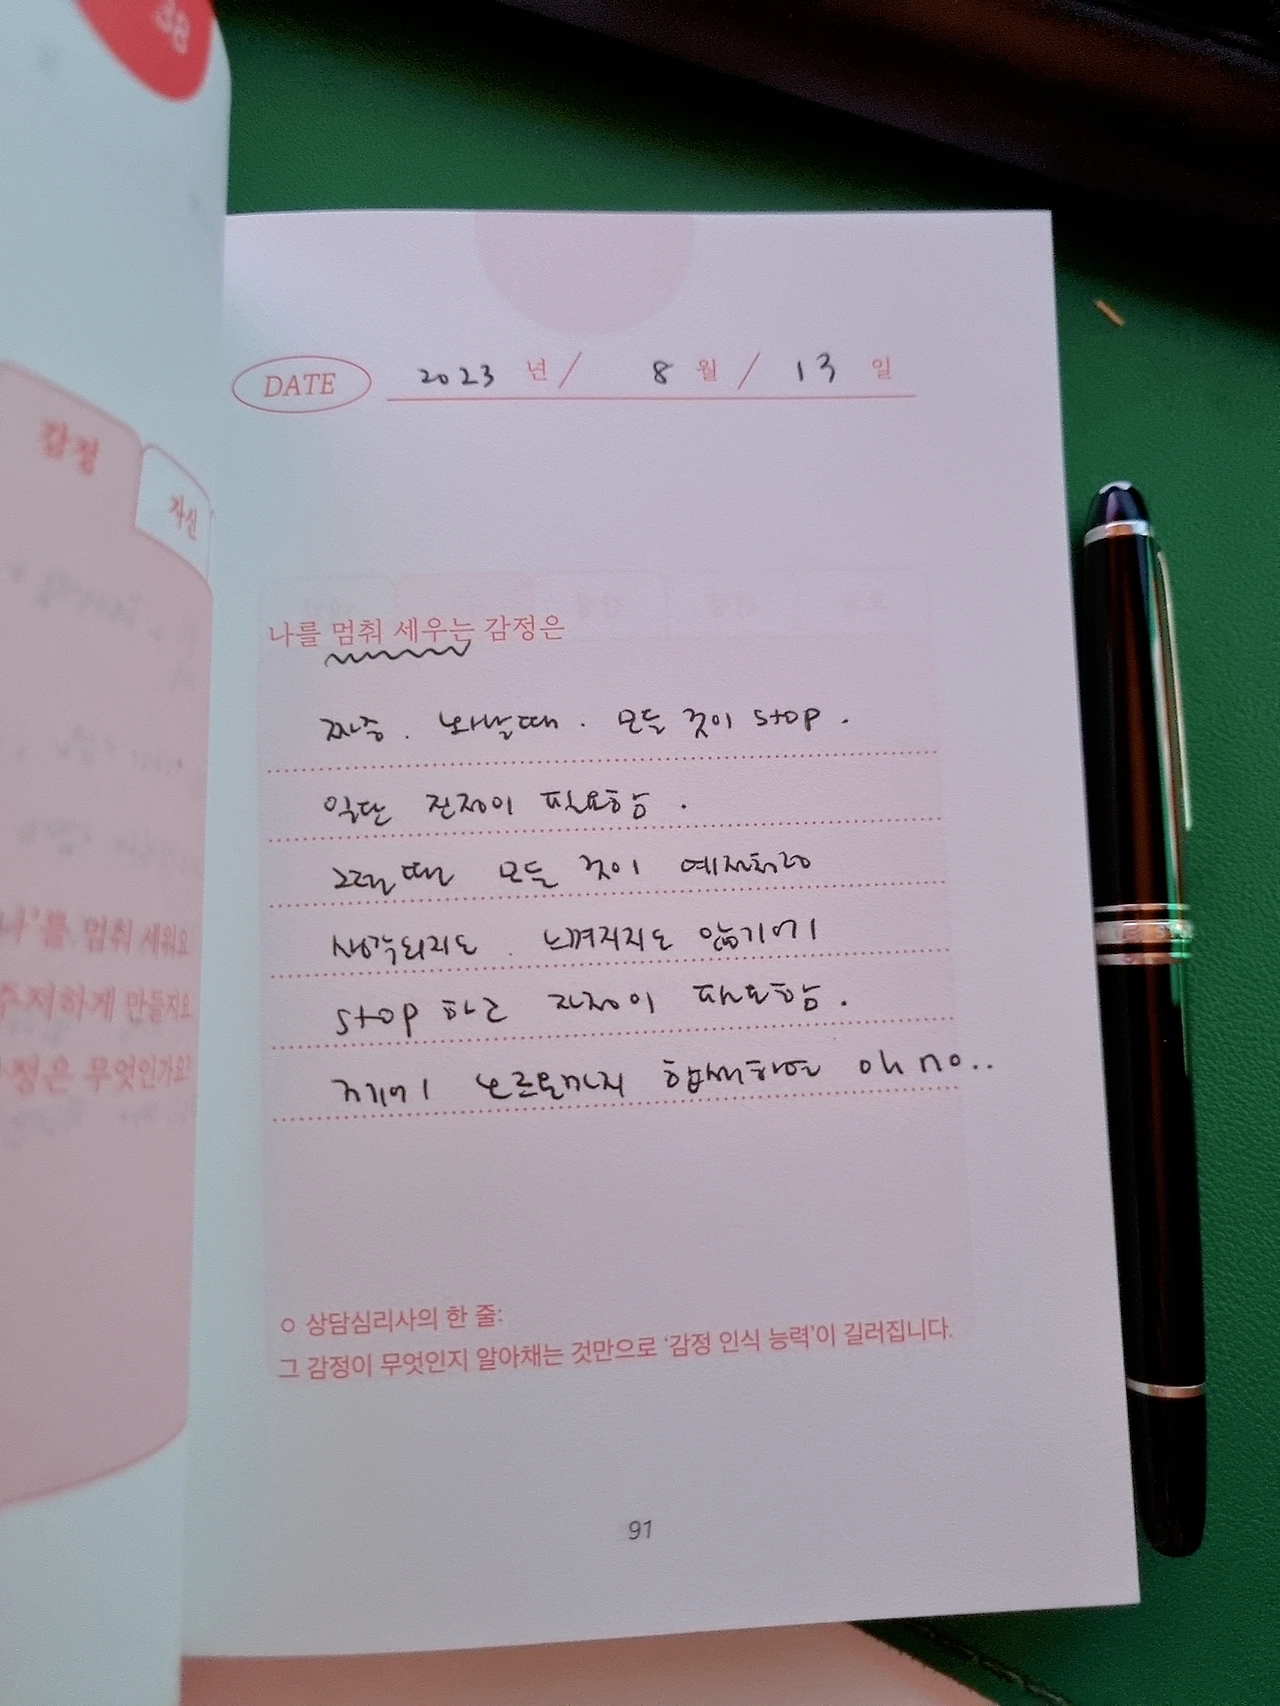 38
감정
자신
나'를 멈춰 세워요
주저하게 만들지요
정은 무엇인가요?
DATE 2023 년 / 8 월 / 13 일
나를 멈춰 세우는 감정은
짜증. 화날때. 모든 것이 stop.
일단 진정이 필요함.
그럴땐 모든 것이 예전처럼
생각되지도. 느껴지지도 않기에
stop 하고 진정이 필요함.
거기에 호르몬까지 합세하면 oh no..
ㅇ 상담심리사의 한 줄:
그 감정이 무엇인지 알아채는 것만으로 '감정 인식 능력'이 길러집니다.
91